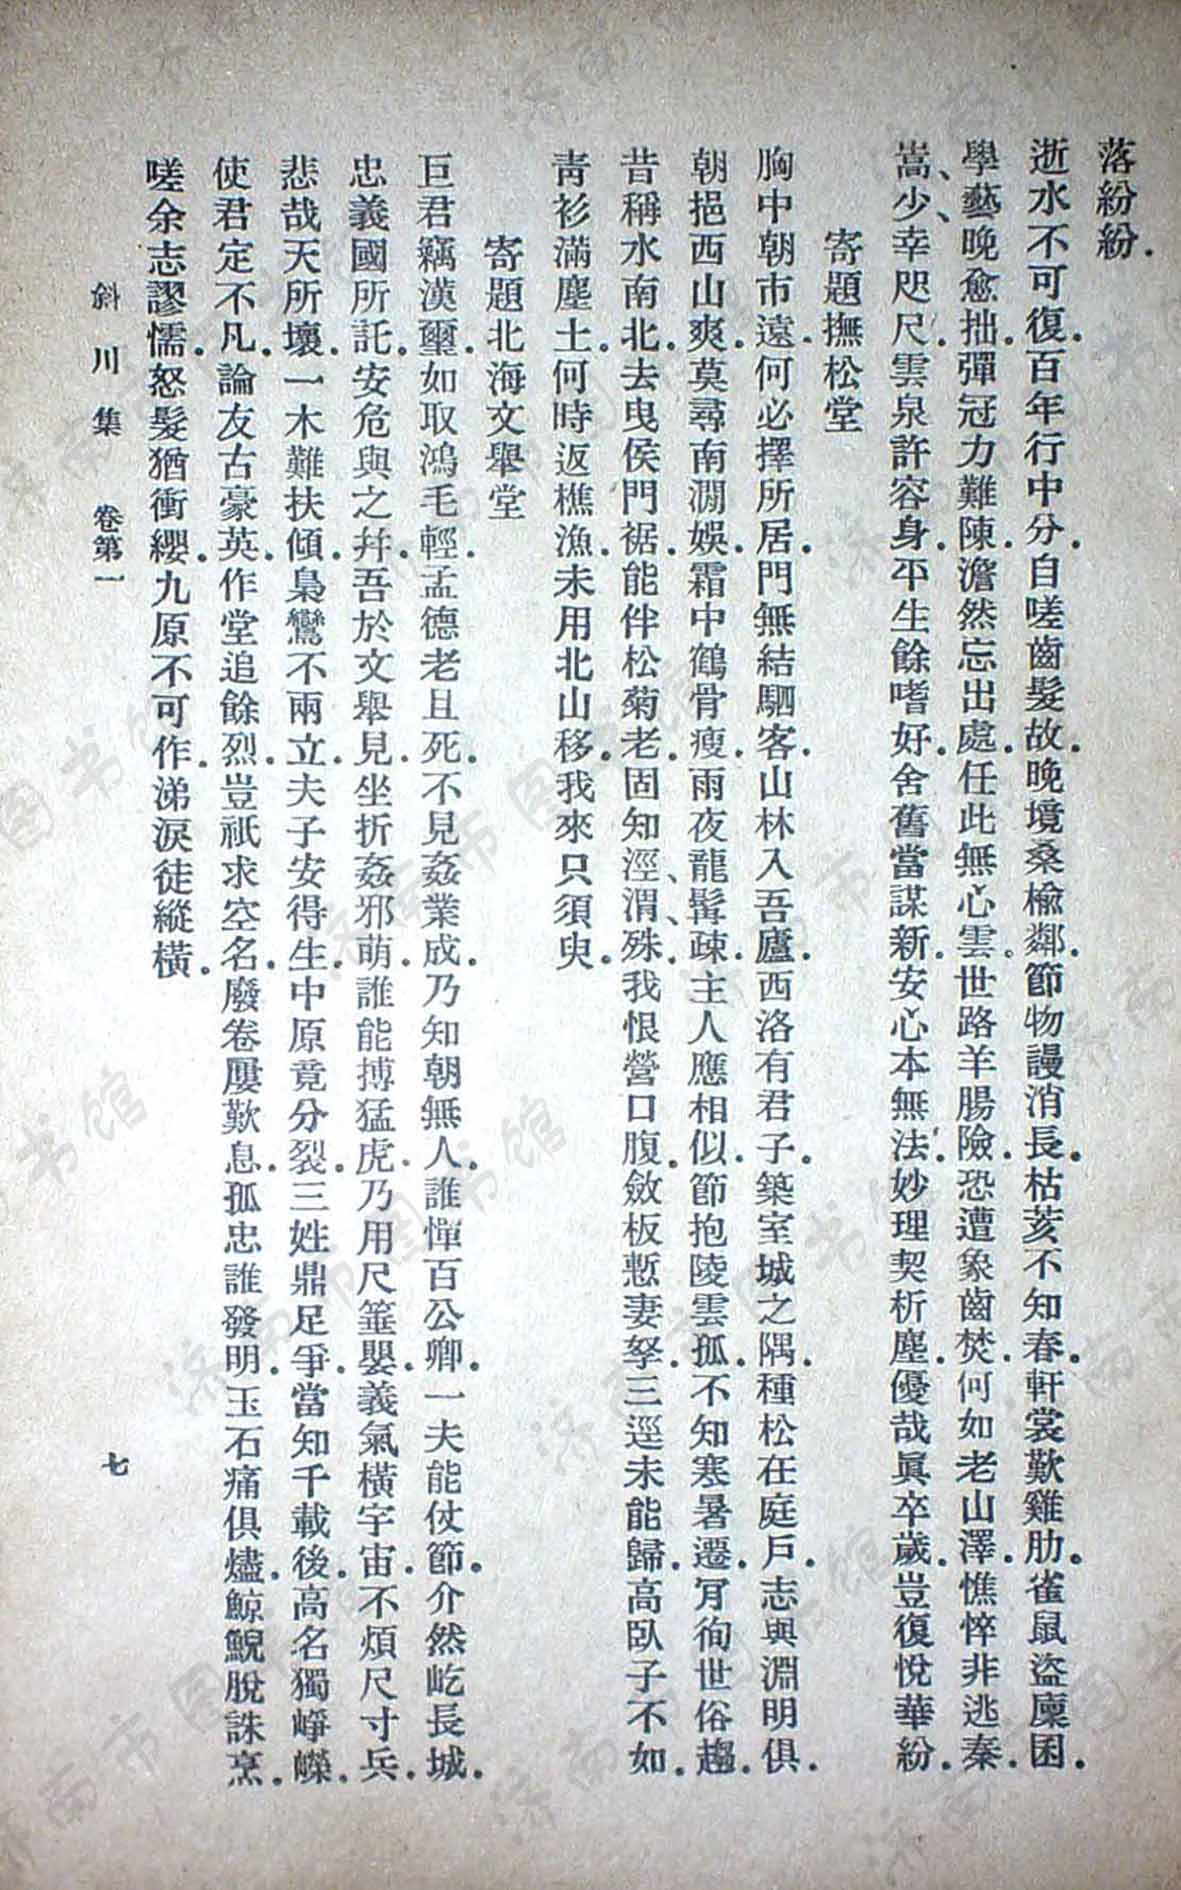 落紛紛
逝水不可復百年行中分自嗟齒髮故晚境桑楡鄰節物謾消長枯荄不知春軒裳歎雞肋雀鼠盜廩囷
學藝晚愈拙彈冠力難陳澹然忘出處任此無心雲世路羊腸險恐遭象齒焚何如老山澤憔悴非逃秦
嵩少幸咫尺雲泉許容身平生餘嗜好舍舊當謀新安心本無法妙理契析塵優哉眞卒歲豈復悅華紛
寄題撫松堂
胸中朝市遠何必擇所居門無結駟客山林入吾廬西洛有君子築室城之隅種松在庭戶志與淵明俱
朝挹西山爽莫尋南澗娛霜中鶴骨瘦雨夜龍髯疎主人應相似節抱陵雲孤不知寒暑遷肎徇世俗趨
昔稱水南北去曳侯門裾能伴松菊老固知涇渭殊我恨營口腹斂板慙妻孥三逕未能歸高臥子不如
靑衫滿塵土何時返樵漁未用北山移我來只須臾
寄題北海文舉堂
巨君竊漢璽如取鴻毛輕孟德老且死不見姦業成乃知朝無人誰憚百公卿一夫能仗節介然屹長城
忠義國所託安危與之幷吾於文舉見坐折姦邪萌誰能搏猛虎乃用尺箠嬰義氣橫宇宙不煩尺寸兵
悲哉天所壞一木難扶傾梟鸞不兩立夫子安得生中原竟分裂三姓鼎足爭當知千載後高名獨崢嶸
使君定不凡論友古豪英作堂追餘烈豈祇求空名廢卷屢歎息孤忠誰發明玉石痛俱燼鯨鯢脫誅烹
嗟余志謬懦怒髮猶衝纓九原不可作涕淚徒縱橫
斜川集 卷第一 七
济南市图书馆